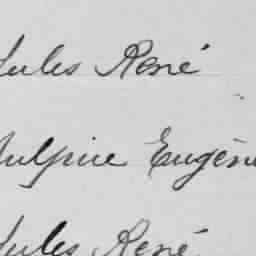 Jules René
Sulpice Eugène
Jules René